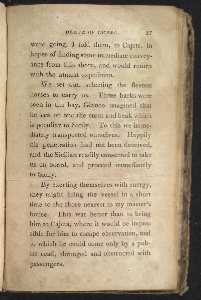 DEATH OF CICERO. 27
were going, I told them, to Cajeta, in
hopes of finding some immediate convey-
ance from this shore, and would return
with the utmost expedition.
We set out, selecting the fleetest
horses to carry us. Three barks were
seen in the bay, Glauco imagined that
he saw of one the stem and beak which
is peculiar to Sicily. To this we imme-
diately transported ourselves. Happily
his penetration had not been deceived,
and the Sicilian readily consented to take
us on board, and proceed immediately
to Sicily.
By exerting themselves with energy,
they might bring the vessel in a short
time to the shore nearest to my master's
house. This was better than to bring
him to Cajeta, where it would be impos-
sible for him to escape observation, and
to which he could come only by a pub-
lic road, thronged and obstructed with
passengers.